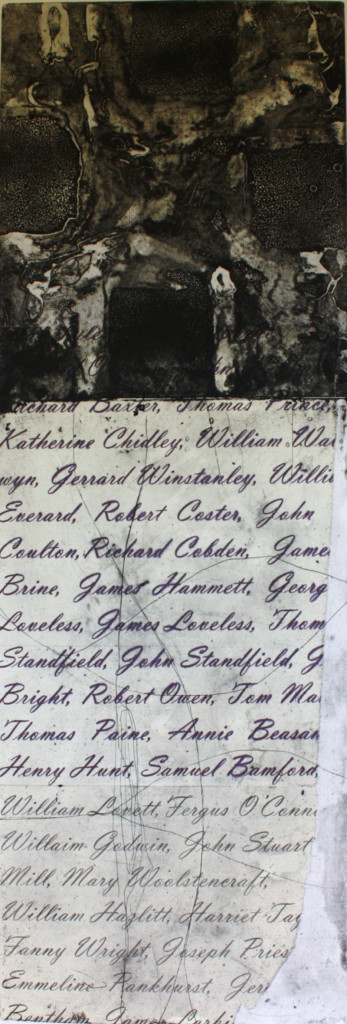 Richard Baxter, Thomas
Katherine Chidley, William Wa
wyn, Gerrard Winstanley, Willi
Everard, Robert Coster, John
Coulton, Richard Cobden, Jame
Brine, James Hammett, Georg
Loveless, James Loveless, Thom
Standfield, John Standfield, G
Bright, Robert Owen, Tom Ma
Thomas Paine, Annie Beasan
Henry Hunt, Samuel Bamford,
William Lovett, Fergus O'Conn
Willaim Godwin, John Stuart
Mill, Mary Woolstencraft,
William Hazlitt, Harriet Tay
Fanny Wright, Joseph Pries
Emmeline Pankhurst, Jer
Bentham, James